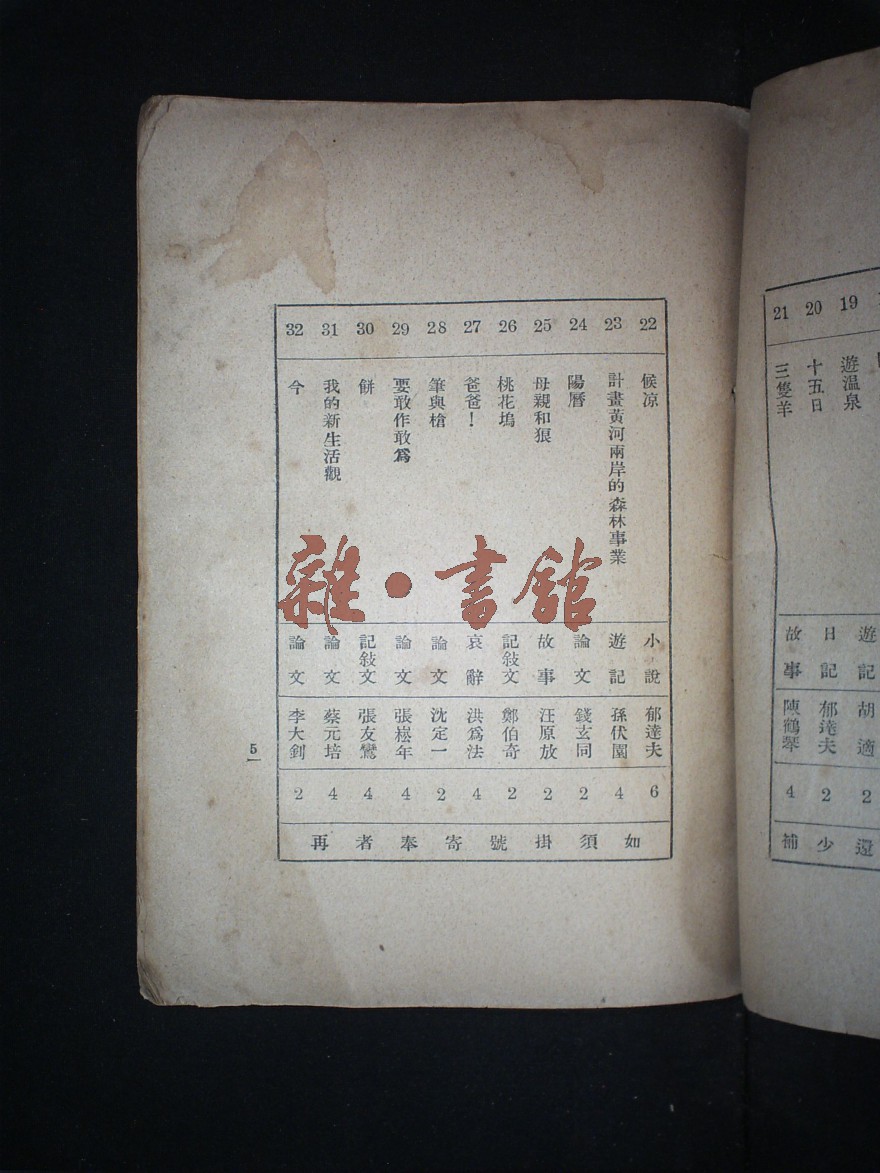 19 遊温泉 遊記 胡適 2
20 十五日 日記 郁達夫 2
21 三隻羊 故事 陳鶴琴 4
還少補
22 候凉 小說 郁達夫 6
23 計畫黃河兩岸的森林事業 遊記 孫伏園 4
24 陽曆 論文 錢玄同 2
25 母親和狼 故事 汪原放 2
26 桃花塢 記敍文 鄭伯奇 2
27 爸爸！ 哀辭 洪爲法 4
28 筆與槍 論文 沈定一 2
29 要敢作敢爲 論文 張崧年 4
30 餅 記敍文 張友鸞 4
31 我的新生活觀 論文 蔡元培 4
32 今 論文 李大釗 2
如須掛號寄奉者再
5
雜·書館